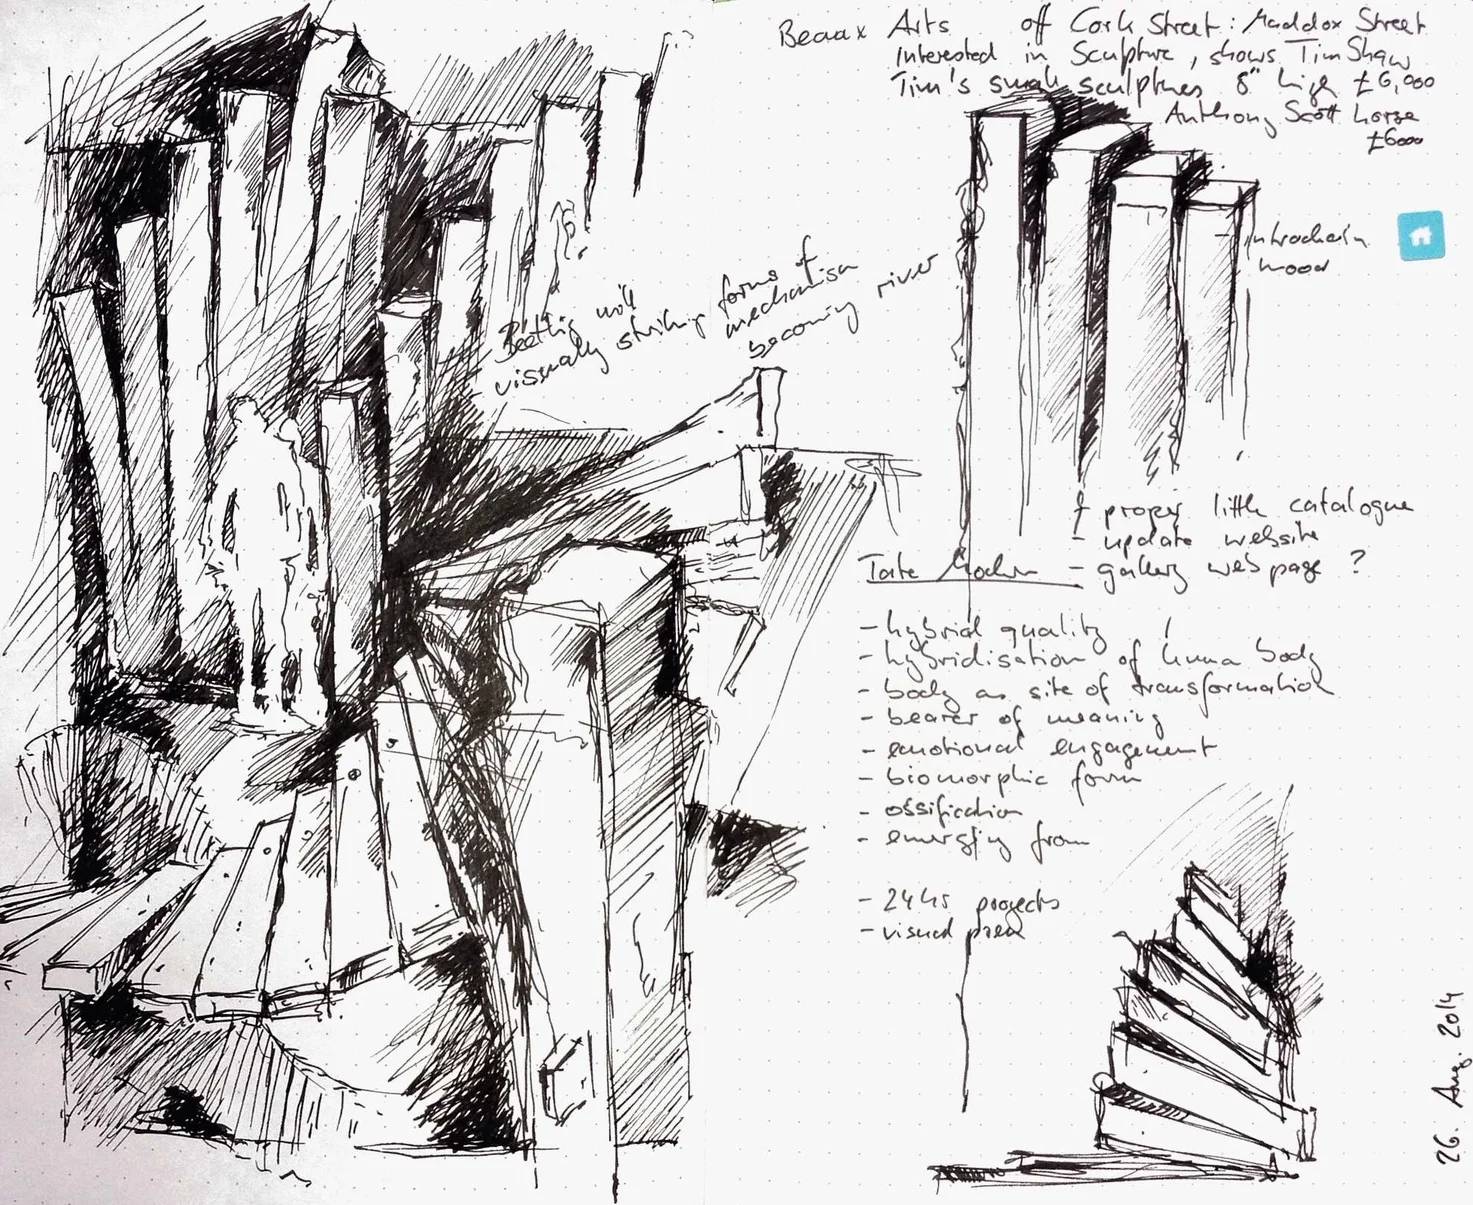 Beaux Arts off Cork Street: Maddox Street
Interested in Sculpture, shows Tim Shaw
Tim's small sculptures 8" high £6,000
Anthony Scott horse
£6000
introchain
wood
visually striking forms of
mechanism
becoming river
proper little catalogue
- update website
Tate Modern - gallery webpage ?
- hybrid quality
- hybridisation of huma body
- body as site of transformation
- bearer of meaning
- emotional engagement
- biomorphic form
- ossification
- emerging from
- 24hs projects
- visual
26. Aug. 2014